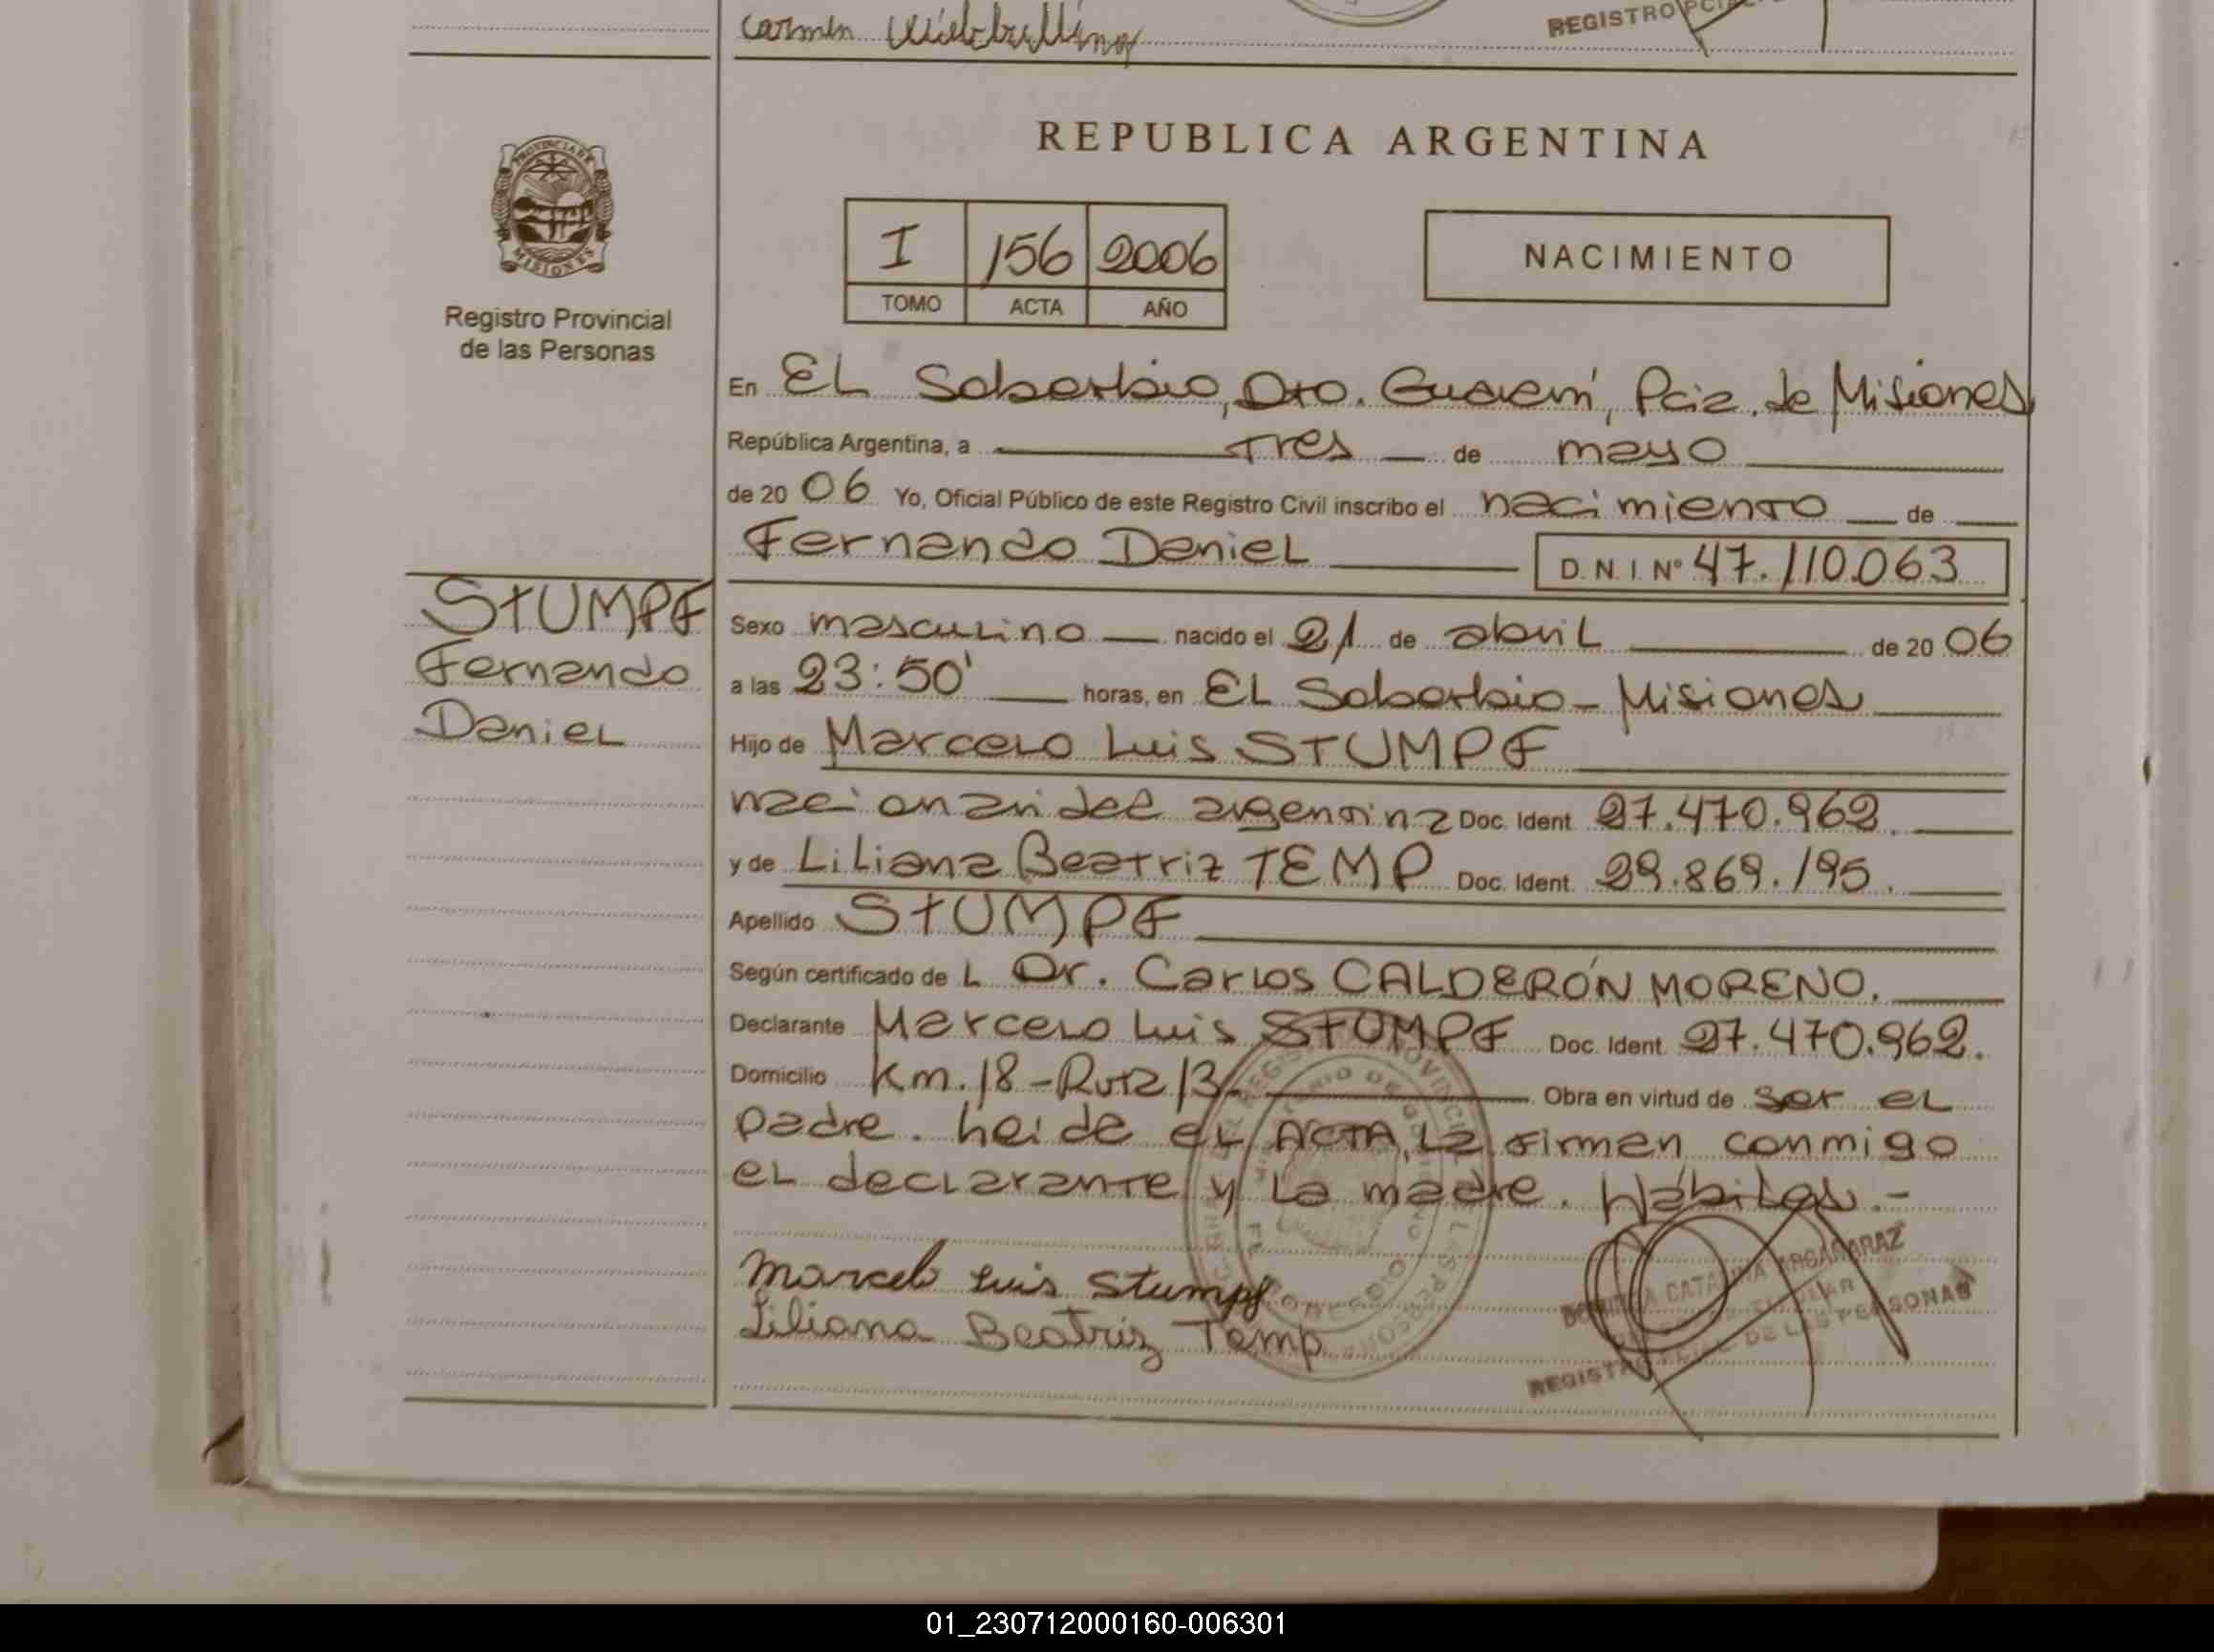 Carmen
REGISTRO PCIAL.
PROVINCIA DE
MISIONES
Registro Provincial
de las Personas
REPUBLICA ARGENTINA
I 156 2006
TOMO ACTA AÑO
NACIMIENTO
En EL Soberbio, Dto. Guaraní, Pcia. de Misiones
República Argentina, a tres de mayo
de 20 06 Yo, Oficial Público de este Registro Civil inscribo el nacimiento de
Fernando Daniel D.N.I. Nº 47.110.063
STUMPF
Fernando
Daniel
Sexo masculino nacido el 21 de abril de 20 06
a las 23:50' horas, en EL Soberbio - Misiones
Hijo de Marcelo Luis STUMPF
nacionalidad argentina Doc. Ident. 27.470.962.
y de Liliana Beatriz TEMP Doc. Ident. 29.869.195.
Apellido STUMPF
Según certificado de L Dr. Carlos CALDERÓN MORENO.
Declarante Marcelo Luis STUMPF Doc. Ident. 27.470.962.
Domicilio Km. 18 - Ruta 13 Obra en virtud de ser el
padre. Leída el ACTA, la firman conmigo
el declarante y la madre. Hábiles.-
Marcelo Luis Stumpf
Liliana Beatriz Temp
CATALINA ARGAÑARAZ
TITULAR
REGISTRO PCIAL. DE LAS PERSONAS
01_230712000160-006301